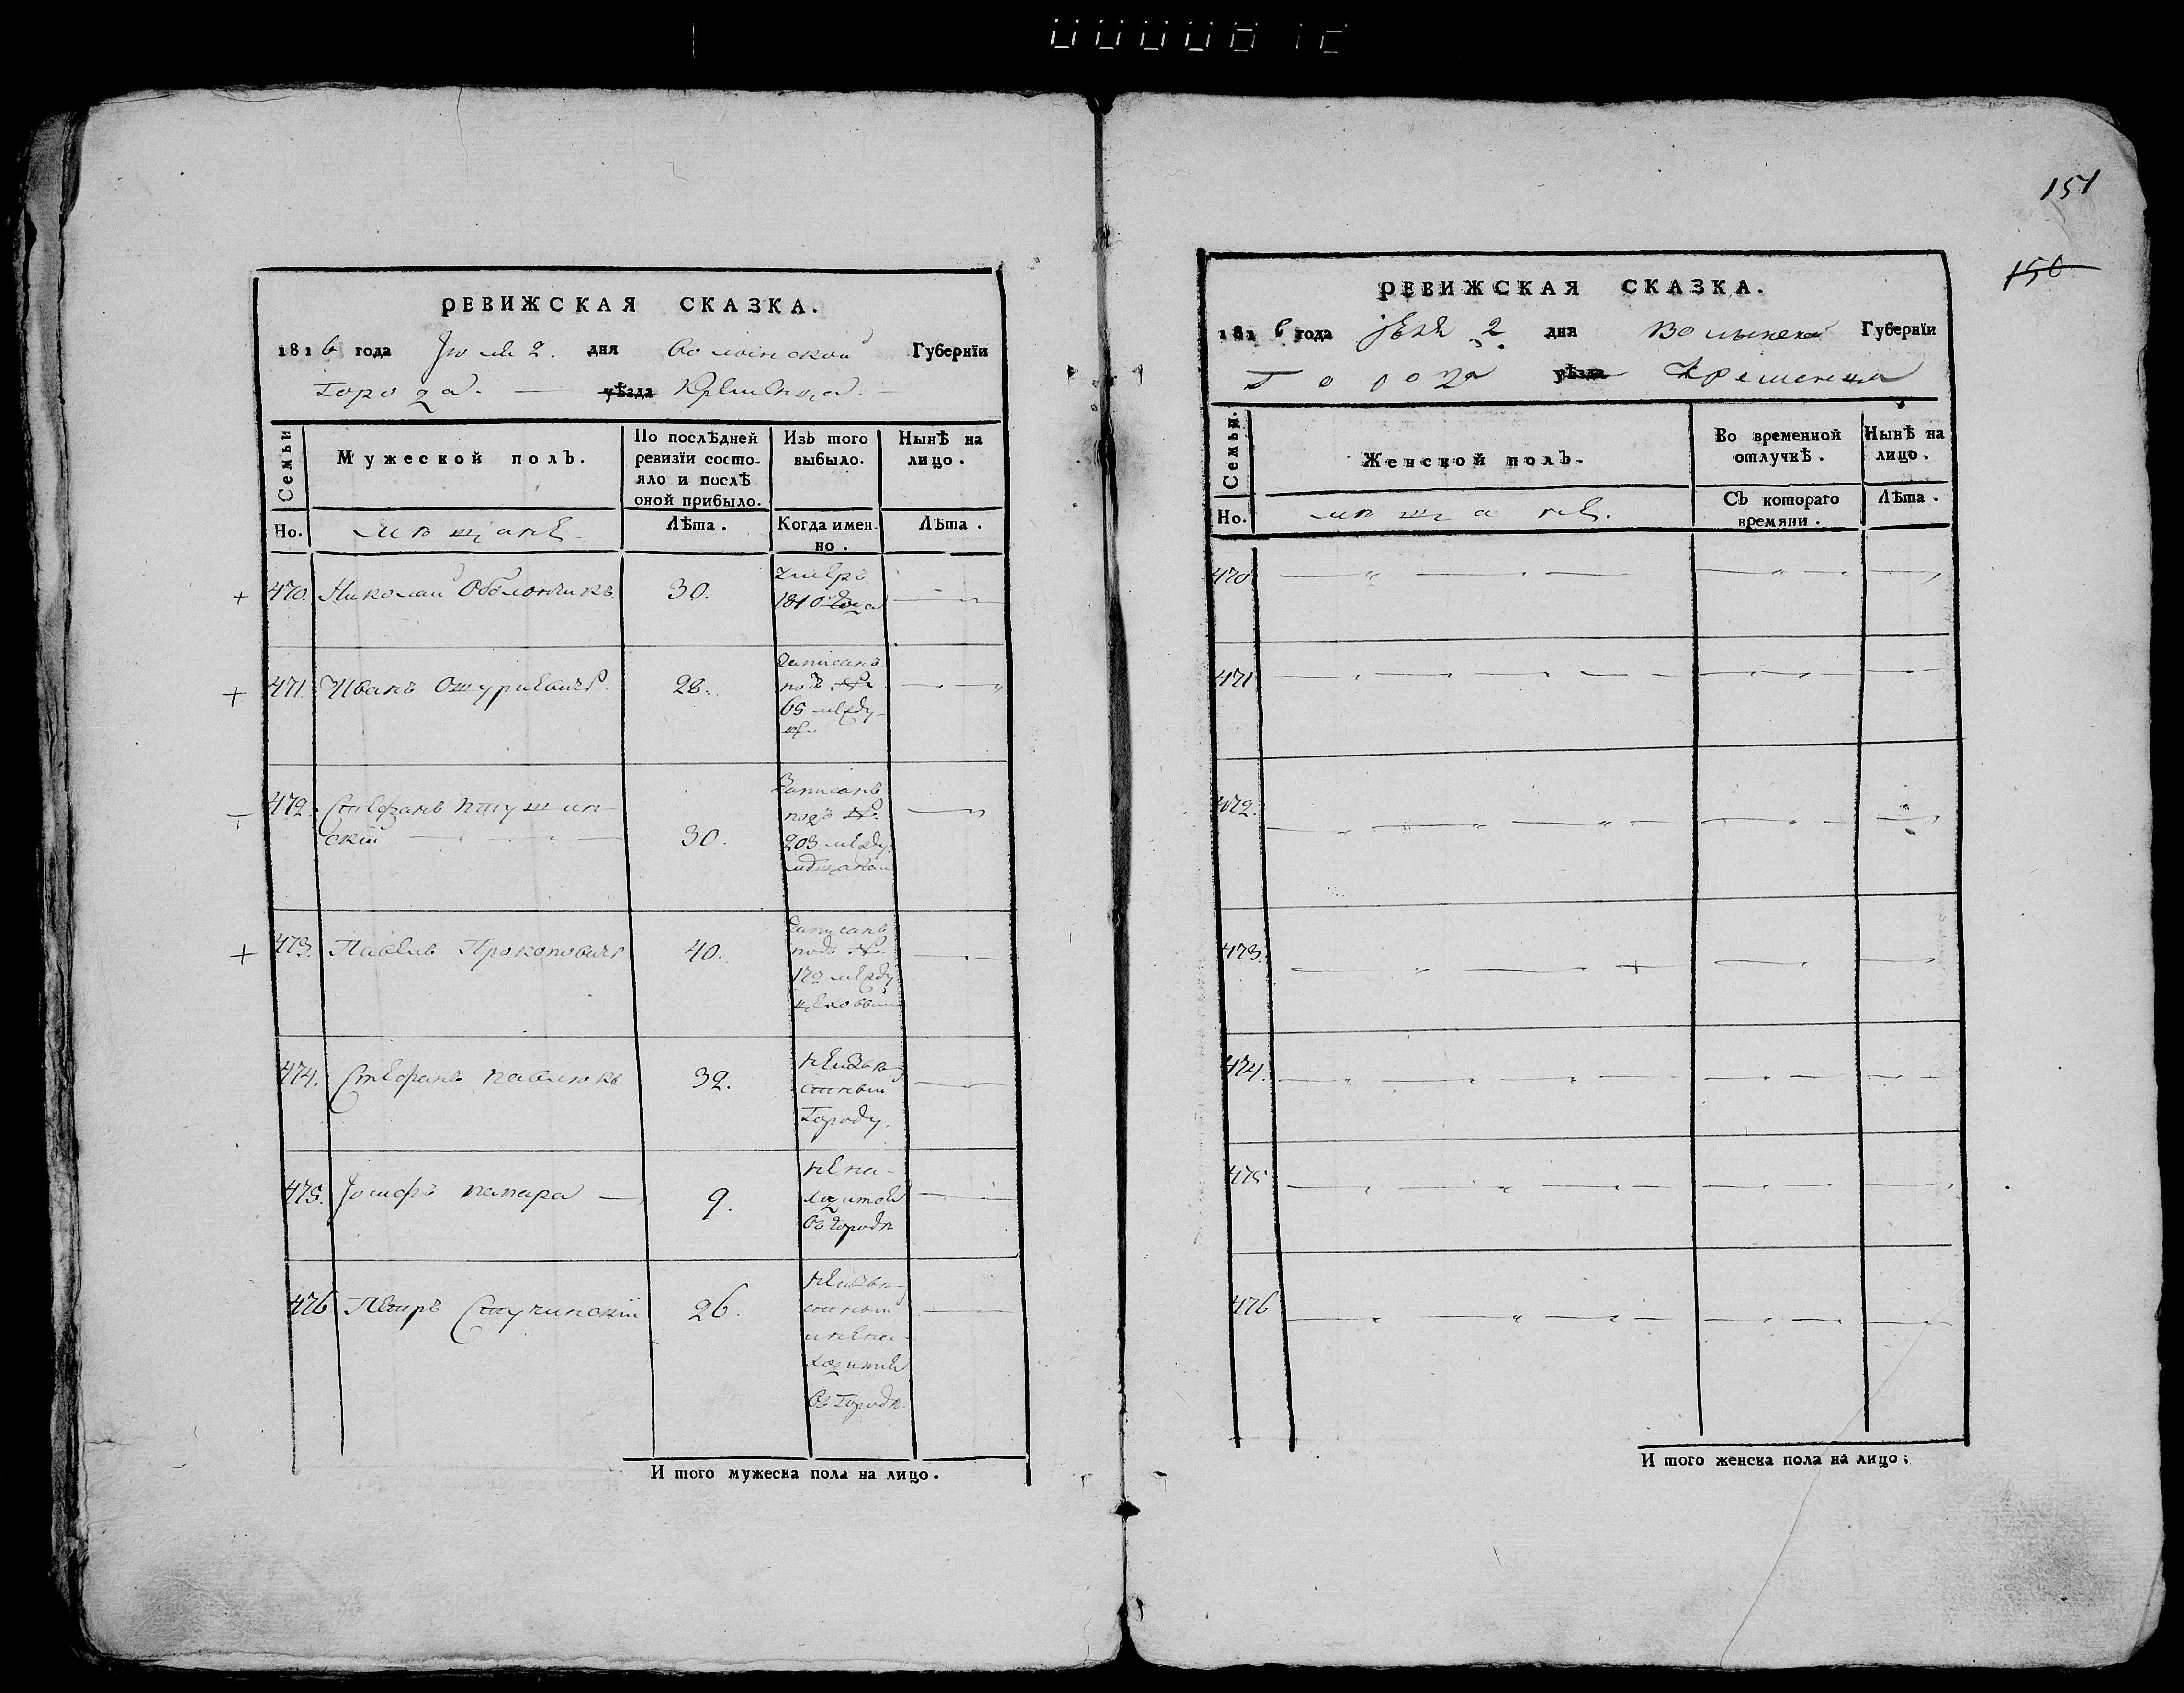 151
150
РЕВИЖСКАЯ СКАЗКА.
1816 года Июля 2. дня Волынской Губернїи
Города. — уѣзда Кременца. —
Семьи
Мужеской полъ.
По послѣдней ревизїи состояло и послѣ оной прибыло.
Изъ того выбыло.
Нынѣ на лицо.
Но.
мѣщане.
Лѣта.
Когда именно.
Лѣта.
+ 470. Николай 30.
умеръ
1810 года
+ 471. Иванъ 28.
Записанъ
подъ №
65 между
- 472. Стефанъ Птушин-
ский 30.
Записанъ
подъ №.
203 между
мѣщанами
+ 473. Павелъ Прокоповичъ 40.
Записанъ
подъ №.
172 между
цеховыми
474. Стефанъ Павлюкъ 32.
неизвѣ-
стный
Городу.
475. Иосифъ 9.
нена-
ходится
въ городѣ
476 Петръ Стучинскїй 26.
неизвѣ-
стный
и нена-
ходится
въ Городѣ.
И того мужеска пола на лицо.
РЕВИЖСКАЯ СКАЗКА.
1816 года Июля 2 дня Волынской Губернїи
Города уѣзда Кременца
Семьи.
Женской полъ.
Во временной отлучкѣ.
Нынѣ на лицо.
Но.
мѣщане.
Съ котораго времяни.
Лѣта.
470
471
472.
473.
474.
475
476
И того женска пола на лицо: